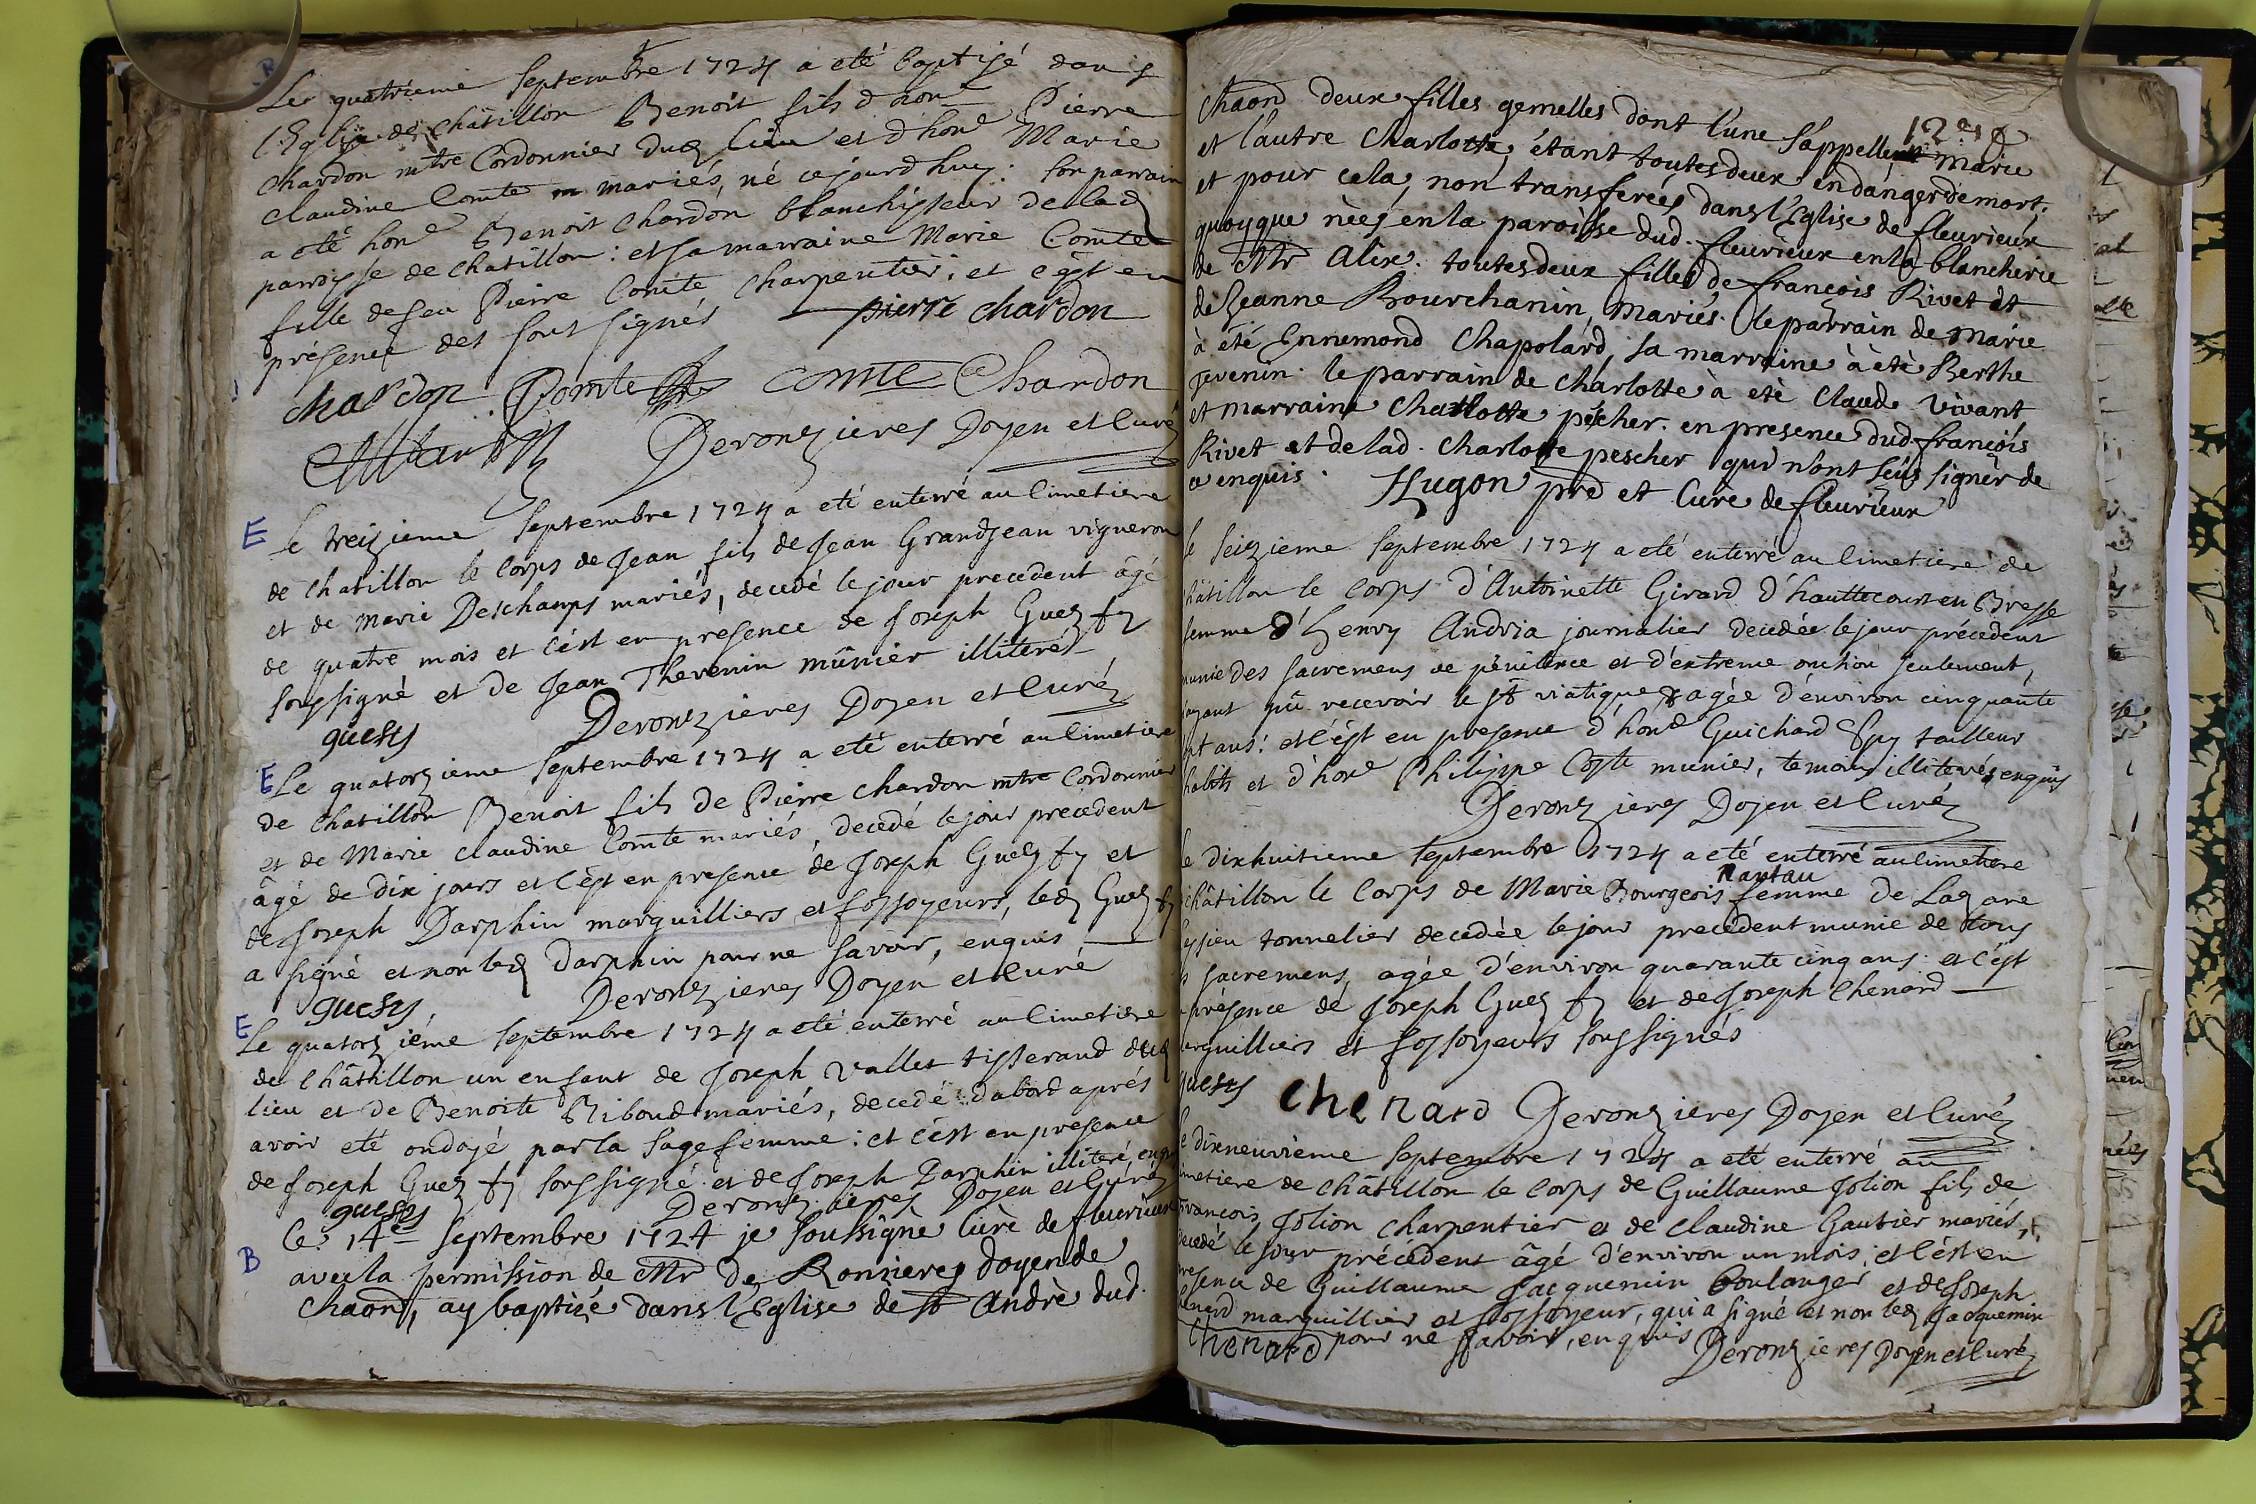 B
Le quatrieme Septembre 1724 a eté baptisé dans
l'Eglise de Châtillon Benoit fils d'hon.e Pierre
Chardon mtre Cordonnier dud lieu et d'hon.e Marie
Claudine Comte mariés, né cejourdhuy: son parrain
a eté hon.e Benoit Chardon blanchisseur de lad
paroisse de Chatillon: et sa marraine Marie Comte
fille de feu Pierre Comte Charpentier: et c'est en
présence des sous signés pierre chardon
chardon Comte comte Chardon
Deronzieres Doyen et Curé
E
Le treizieme Septembre 1724 a eté enterré au Cimetiere
de Chatillon le Corps de Jean fils de Jean Grandjean vigneron
et de Marie Deschamps mariés, decedé le jour precedent âgé
de quatre mois et c'est en presence de Joseph Guez fy
soussigné et de Jean Thevenin mûnier illiteré
guesfy Deronzieres Doyen et Curé
E Le quatorzieme Septembre 1724 a eté enterré au Cimetiere
de Chatillon Benoit fils de Pierre Chardon mtre Cordonnier
et de Marie Claudine Comte mariés, decedé le jour precedent
âgé de dix jours et c'est en presence de Joseph Guez fy et
de Joseph Darphin marguilliers et fossoyeurs, led Guez fy
a signé et non led Darphin pour ne savoir, enquis
guesfy, Deronzieres Doyen et Curé
E
Le quatorziéme Septembre 1724 a eté enterré au Cimetiere
de Châtillon un enfant de Joseph Vallet tisserand dud
lieu et de Benoite Riboud mariés, decedé dabord aprés
avoir eté ondoyé par la Sage femme: et c'est en presence
de Joseph Guez fy soussigné et de Joseph Darphin illiteré enquis
guesfy Deronzieres Doyen et Curé
B
Ce 14e Septembre 1724 je soussigné Curé de fleurieux
avec la permission de Mr De Ronzieres doyen de
Chaon, ay baptizé dans l'Eglise de st Andrè dud.
Chaon deux filles gemelles dont l'une s'appelle Marie
et l'autre Charlotte, étant toutes deux en danger de mort.
et pour cela, non transferées dans l'Eglise de fleurieux
quoyque nées en la paroisse dud. fleurieux en la blancherie
de Mr Alix. toutes deux filles de françois Rivet et
de Jeanne Bourchanin, mariés. le parrain de Marie
à été Ennemond Chapolard, sa marraine à etè Berthe
Tevenin. le parrain de Charlotte à eté Claude Vivant
et marraine Charlotte pescher. en presence dud françois
Rivet et de lad. Charlotte pescher qui n'ont seüs signer de
ce enquis. Hugon pre et Curé de fleurieux
le Seizieme Septembre 1724 a eté enterré au Cimetiere de
hâtillon le Corps d'Antoinette Girard d'hauttecourt en Bresse
femme d'Henry Andria journalier decedée le jour précedent
munie des sacremens de pénitence et d'extreme onction seulement,
ayant pû recevoir le st viatique agée d'environ cinquante
pt ans: et c'est en presence d'hon.e Guichard Spy tailleur
habits et d'hon.e Philippe Coste munier, temoins illiterés enquis
Deronzieres Doyen et Curé
le dixhuitieme Septembre 1724 a eté enterré au Cimetiere
châtillon le Corps de Marie Bourgeois Nantau femme de Lazare
yssieu tonnelier decedée le jour precedent munie de tous
s sacremens, agée d'environ quarante cinq ans: et c'est
présence de Joseph Guez fy et de Joseph Chenard
arguilliers et fossoyeurs soussignés
guesfy chenard Deronzieres Doyen et Curé
le dixneuvieme Septembre 1724 a eté enterré au
imetiere de Châtillon le Corps de Guillaume Jolion fils de
François Jolion charpentier et de Claudine Gautier mariés,
decedé le jour précedent âgé d'environ un mois, et c'est en
presence de Guillaume Jacquemin boulanger et de Joseph
henard marguillier et fossoyeur, qui a signé et non led Jacquemin
chenard pour ne savoir, enquis Deronzieres Doyen et Curé